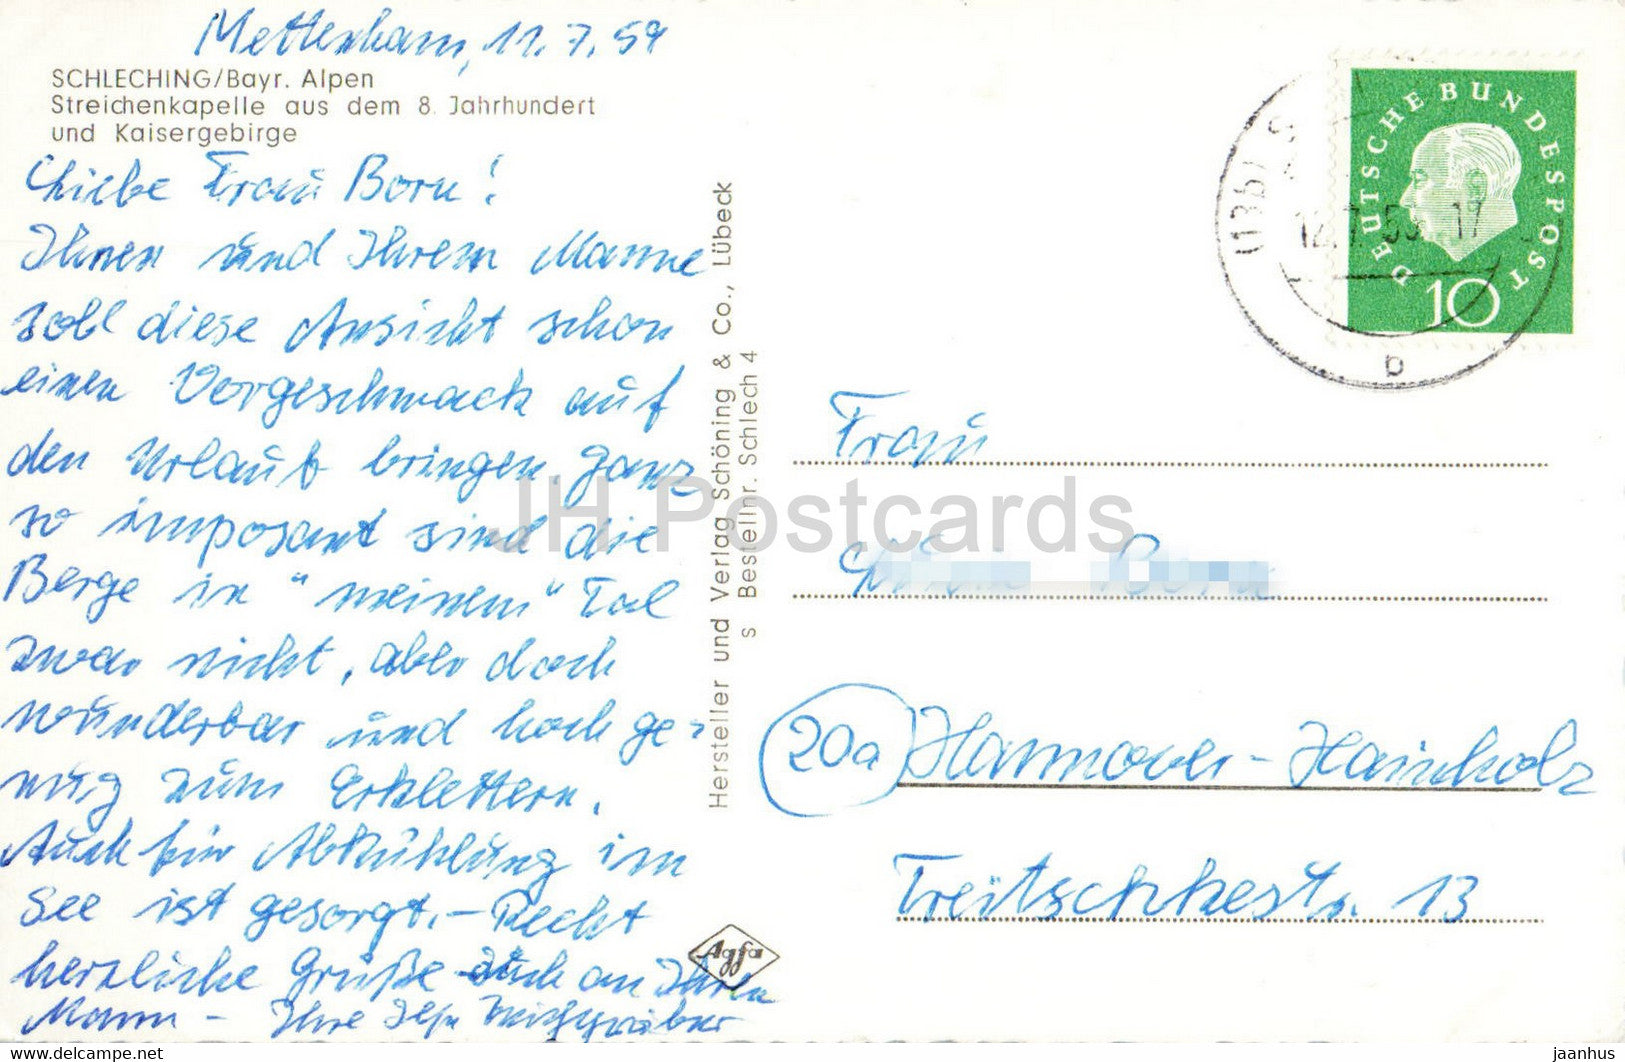 Mettenham, 11.7.59
SCHLECHING/Bayr. Alpen
Streichenkapelle aus dem 8. Jahrhundert
und Kaisergebirge
Liebe Frau Born!
Ihnen und Ihrem Manne
soll diese Ansicht schon
einen Vorgeschmack auf
den Urlaub bringen. Ganz
so imposant sind die
Berge in "meinem" Tal
zwar nicht, aber doch
wunderbar und hoch ge-
nug zum Erklettern.
Auch für Abkühlung im
See ist gesorgt. – Recht
herzliche Grüße auch an Ihren
Mann – Ihre Ilse
Hersteller und Verlag Schöning & Co., Lübeck
S Bestellnr. Schlech 4
Agfa
DEUTSCHE BUNDESPOST
10
(13b) S
12.7.59. 17
b
Frau
Born
20a Hannover-Hainholz
Treitschkestr. 13
JH Postcards
www.delcampe.net
jaanhus